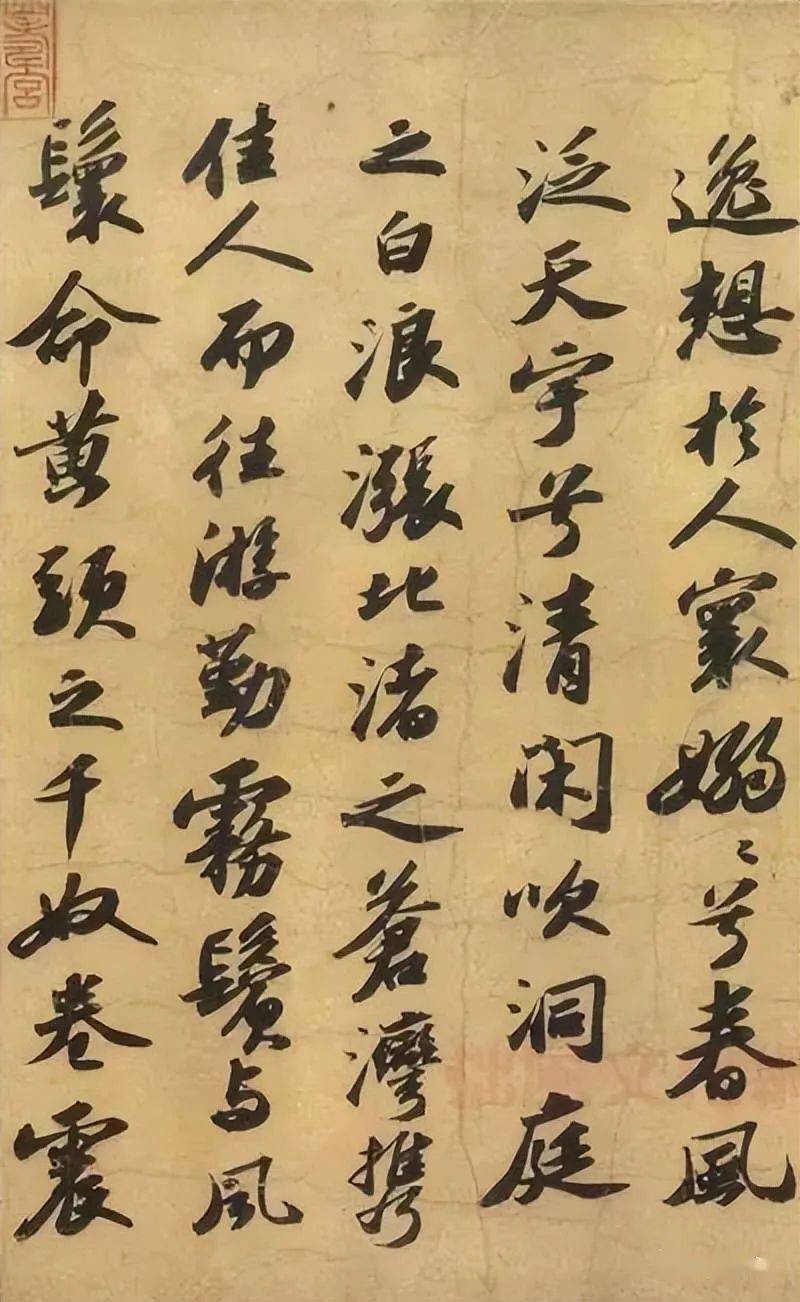 逸想於人寰嫋〻兮春風
泛天宇兮清閑吹洞庭
之白浪漲北渚之蒼灣携
佳人而往游勤霧鬢与風
鬟命黃頭之千奴卷震